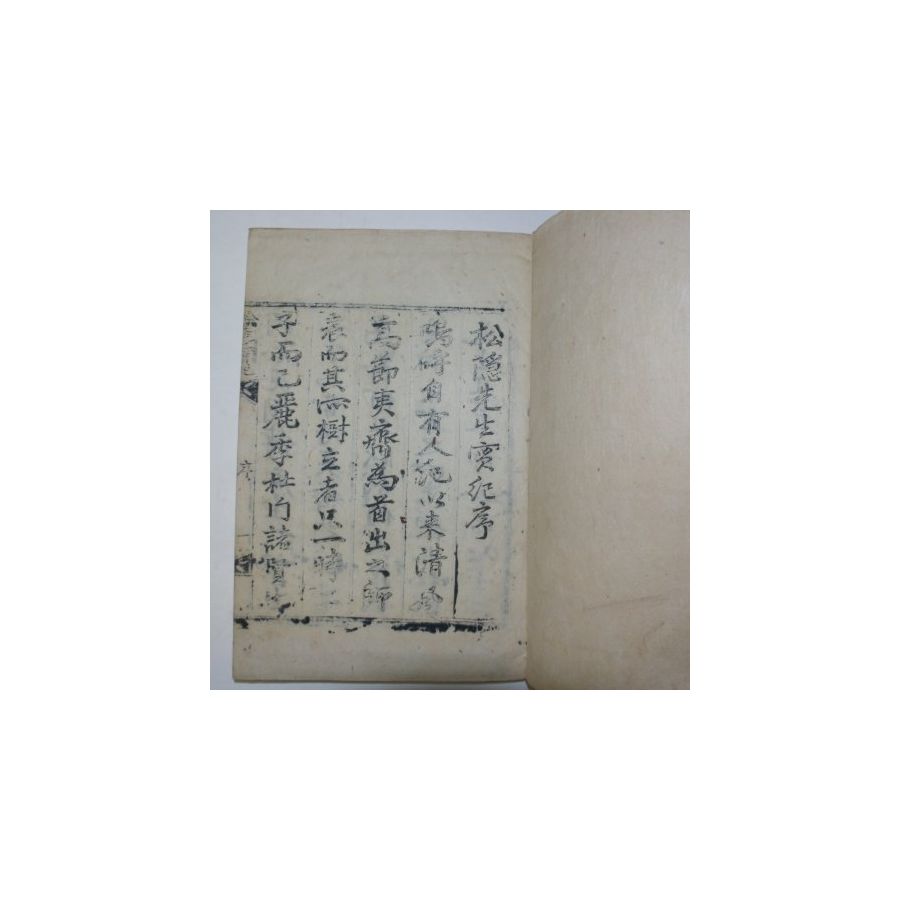 松隱先生實紀序
嗚呼自有人紀以来清風
高節夷齊為首出之師
表而其所樹立者只一時二
子而已麗季杜门諸賢
序